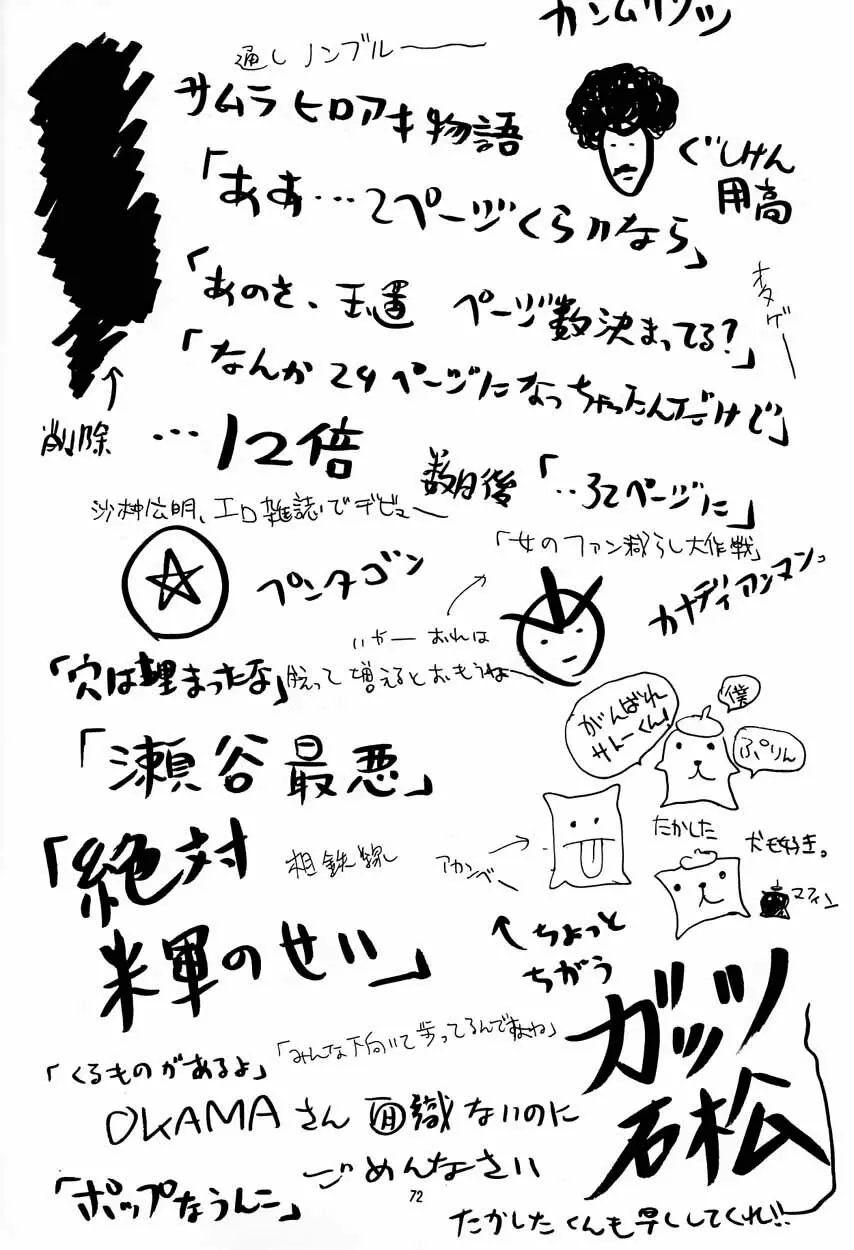 カンムリワシ
通しノンブルー
サムラヒロアキ物語
ぐしけん
用高
「ああ…2ページくらいなら」
「あのさ、玉置 ページ数決まってる?」
オタゲー
「なんか24ページになっちゃったんだけど」
削除
…12倍
数日後「‥32ページに」
沙村広明、エロ雑誌でデビュー
「女のファン減らし大作戦」
ペンタゴン
カナディアンマン。
いやー おれは
「穴は埋まったな」
脱って増えるとおもうねー
がんばれ
サトーくん!
僕
ぷりん
「瀬谷最悪」
たかした
犬も好き。
「絶対
相鉄線
アカンベー
マフィン
米軍のせい」
←ちょっと
ちがう
ガッツ
石松
「みんな下向いて歩ってるんですよね」
「くるものがあるよ」
OKAMAさん 面識ないのに
ごめんなさい
「ポップなうんこ」
72
たかしたくんも早くしてくれ!!